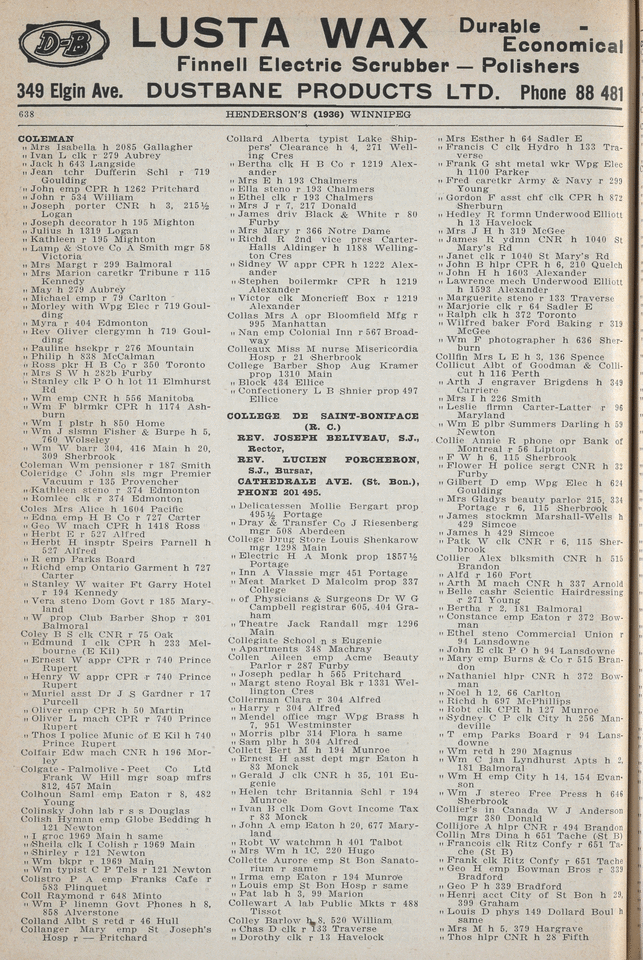 D-B
LUSTA WAX
Durable -
Economical
Finnell Electric Scrubber — Polishers
349 Elgin Ave. DUSTBANE PRODUCTS LTD. Phone 88 481
638 HENDERSON'S (1936) WINNIPEG
COLEMAN
„ Mrs Isabella h 2085 Gallagher
„ Ivan L clk r 279 Aubrey
„ Jack h 643 Langside
„ Jean tchr Dufferin Schl r 719
Goulding
„ John emp CPR h 1262 Pritchard
„ John r 534 William
„ Joseph porter CNR h 3, 215½
Logan
„ Joseph decorator h 195 Mighton
„ Julius h 1319 Logan
„ Kathleen r 195 Mighton
„ Lamp & Stove Co A Smith mgr 58
Victoria
„ Mrs Margt r 299 Balmoral
„ Mrs Marion caretkr Tribune r 115
Kennedy
„ May h 279 Aubrey
„ Michael emp r 79 Carlton
„ Morley with Wpg Elec r 719 Goul-
ding
„ Myra r 404 Edmonton
„ Rev Oliver clergymn h 719 Goul-
ding
„ Pauline hsekpr r 276 Mountain
„ Philip h 838 McCalman
„ Ross pkr H B Co r 350 Toronto
„ Mrs S W h 282b Furby
„ Stanley clk P O h lot 11 Elmhurst
Rd
„ Wm emp CNR h 556 Manitoba
„ Wm F blrmkr CPR h 1174 Ash-
burn
„ Wm I plstr h 850 Home
„ Wm J slsmn Fisher & Burpe h 5,
760 Wolseley
„ Wm W barr 304, 416 Main h 20,
309 Sherbrook
Coleman Wm pensioner r 187 Smith
Coleridge C John sls mgr Premier
Vacuum r 135 Provencher
„ Kathleen steno r 374 Edmonton
„ Romlee clk r 374 Edmonton
Coles Mrs Alice h 1604 Pacific
„ Edna emp H B Co r 727 Carter
„ Geo W mach CPR h 1418 Ross
„ Herbt E r 527 Alfred
„ Herbt H insptr Speirs Parnell h
527 Alfred
„ R emp Parks Board
„ Richd emp Ontario Garment h 727
Carter
„ Stanley W waiter Ft Garry Hotel
r 194 Kennedy
„ Vera steno Dom Govt r 185 Mary-
land
„ W prop Club Barber Shop r 301
Balmoral
Coley B S clk CNR r 75 Oak
„ Edmund I clk CPR h 233 Mel-
bourne (E Kil)
„ Ernest W appr CPR r 740 Prince
Rupert
„ Henry W appr CPR r 740 Prince
Rupert
„ Muriel asst Dr J S Gardner r 17
Purcell
„ Oliver emp CPR h 50 Martin
„ Oliver L mach CPR r 740 Prince
Rupert
„ Thos I police Munic of E Kil h 740
Prince Rupert
Colfair Edw mach CNR h 196 Mor-
ley
Colgate-Palmolive-Peet Co Ltd
Frank W Hill mgr soap mfrs
812, 457 Main
Colhoun Saml emp Eaton r 8, 482
Young
Colinsky John lab r s s Douglas
Colish Hyman emp Globe Bedding h
121 Newton
„ I groc 1969 Main h same
„ Sheila clk I Colish r 1969 Main
„ Shirley r 121 Newton
„ Wm bkpr r 1969 Main
„ Wm typist C P Tels r 121 Newton
Colistro P A emp Franks Cafe r
583 Plinquet
Coll Raymond r 648 Minto
„ Wm P linemn Govt Phones h 8,
858 Alverstone
Colland Albt S retd r 46 Hull
Collanger Mary emp St Joseph's
Hosp r — Pritchard
Collard Alberta typist Lake Ship-
pers' Clearance h 4, 271 Well-
ing Cres
„ Bertha clk H B Co r 1219 Alex-
ander
„ Mrs E h 193 Chalmers
„ Ella steno r 193 Chalmers
„ Ethel clk r 193 Chalmers
„ Mrs J r 7, 217 Donald
„ James driv Black & White r 80
Furby
„ Mrs Mary r 366 Notre Dame
„ Richd R 2nd vice pres Carter-
Halls Aldinger h 1188 Welling-
ton Cres
„ Sidney W appr CPR h 1222 Alex-
ander
„ Stephen boilermkr CPR h 1219
Alexander
„ Victor clk Moncrieff Box r 1219
Alexander
Collas Mrs A opr Bloomfield Mfg r
995 Manhattan
„ Nan emp Colonial Inn r 567 Broad-
way
Colleaux Miss M nurse Misericordia
Hosp r 21 Sherbrook
College Barber Shop Aug Kramer
prop 1310 Main
„ Block 434 Ellice
„ Confectionery L B Shnier prop 497
Ellice
COLLEGE DE SAINT-BONIFACE
(R. C.)
REV. JOSEPH BELIVEAU, S.J.,
Rector,
REV. LUCIEN PORCHERON,
S.J., Bursar,
CATHEDRALE AVE. (St. Bon.),
PHONE 201 495.
„ Delicatessen Mollie Bergart prop
495½ Portage
„ Dray & Transfer Co J Riesenberg
mgr 508 Aberdeen
College Drug Store Louis Shenkarow
mgr 1298 Main
„ Electric H A Monk prop 1857½
Portage
„ Inn A Vlassie mgr 451 Portage
„ Meat Market D Malcolm prop 337
College
„ of Physicians & Surgeons Dr W G
Campbell registrar 605, 404 Gra-
ham
„ Theatre Jack Randall mgr 1296
Main
Collegiate School n s Eugenie
„ Apartments 348 Machray
Collen Aileen emp Acme Beauty
Parlor r 287 Furby
„ Joseph pedlar h 565 Pritchard
„ Margt steno Royal Bk r 1331 Wel-
lington Cres
Collerman Clara r 304 Alfred
„ Harry r 304 Alfred
„ Mendel office mgr Wpg Brass h
7, 951 Westminster
„ Morris plbr 314 Flora h same
„ Sam plbr h 304 Alfred
Collett Bert M h 194 Munroe
„ Ernest H asst dept mgr Eaton h
83 Monck
„ Gerald J clk CNR h 35, 101 Eu-
genie
„ Helen tchr Britannia Schl r 194
Munroe
„ Ivan B clk Dom Govt Income Tax
r 83 Monck
„ John A emp Eaton h 20, 677 Mary-
land
„ Robt W watchmn h 401 Talbot
„ Mrs Wm h 1C, 220 Hugo
Collette Aurore emp St Bon Sanato-
rium r same
„ Irma emp Eaton r 194 Munroe
„ Louis emp St Bon Hosp r same
„ Pat lab h 3, 99 Marion
Collewart A lab Public Mkts r 488
Tissot
Colley Barlow h 8, 520 William
„ Chas D clk r 133 Traverse
„ Dorothy clk r 13 Havelock
„ Mrs Esther h 64 Sadler E
„ Francis C clk Hydro h 133 Tra-
verse
„ Frank G sht metal wkr Wpg Elec
h 1100 Parker
„ Fred caretkr Army & Navy r 299
Young
„ Gordon F asst chf clk CPR h 872
Sherburn
„ Hedley R formn Underwood Elliott
h 13 Havelock
„ Mrs J H h 319 McGee
„ James R ydmn CNR h 1040 St
Mary's Rd
„ Janet clk r 1040 St Mary's Rd
„ John B hlpr CPR h 6, 210 Quelch
„ John H h 1603 Alexander
„ Lawrence mech Underwood Elliott
h 1593 Alexander
„ Marguerite steno r 133 Traverse
„ Marjorie clk r 64 Sadler E
„ Ralph clk h 372 Toronto
„ Wilfred baker Ford Baking r 319
McGee
„ Wm F photographer h 636 Sher-
burn
Collfin Mrs L E h 3, 136 Spence
Collicut Albt of Goodman & Colli-
cut h 116 Perth
„ Arth J engraver Brigdens h 349
Carriere
„ Mrs I h 226 Smith
„ Leslie firmn Carter-Latter r 96
Maryland
„ Wm E plbr Summers Darling h 59
Newton
Collie Annie R phone opr Bank of
Montreal r 56 Lipton
„ F W h 6, 115 Sherbrook
„ Flower H police sergt CNR h 32
Furby
„ Gilbert D emp Wpg Elec h 624
Goulding
„ Mrs Gladys beauty parlor 215, 334
Portage r 6, 115 Sherbrook
„ James stockmn Marshall-Wells h
429 Simcoe
„ James h 429 Simcoe
„ Patk W clk CNR r 6, 115 Sher-
brook
Collier Alex blksmith CNR h 515
Brandon
„ Alfd r 160 Fort
„ Arth M mach CNR h 337 Arnold
„ Belle cashr Scientic Hairdressing
r 271 Young
„ Bertha r 2, 181 Balmoral
„ Constance emp Eaton r 372 Bow-
man
„ Ethel steno Commercial Union r
94 Lansdowne
„ John E clk P O h 94 Lansdowne
„ Mary emp Burns & Co r 515 Bran-
don
„ Nathaniel hlpr CNR h 372 Bow-
man
„ Noel h 12, 66 Carlton
„ Richd h 697 McPhillips
„ Robt clk CPR h 127 Munroe
„ Sydney C P clk City h 256 Man-
deville
„ T emp Parks Board r 94 Lans-
downe
„ Wm retd h 290 Magnus
„ Wm C jan Lyndhurst Apts h 2,
181 Balmoral
„ Wm H emp City h 14, 154 Evan-
son
„ Wm J stereo Free Press h 646
Sherbrook
Collier's in Canada W J Anderson
mgr 380 Donald
Collijore A hlpr CNR r 494 Brandon
Collin Mrs Dina h 651 Tache (St B)
„ Francois clk Ritz Confy r 651 Ta-
che (St B)
„ Frank clk Ritz Confy r 651 Tache
„ Geo H emp Bowman Bros r 339
Bradford
„ Geo P h 339 Bradford
„ Henri acct City of St Bon h 29,
399 Graham
„ Louis D phys 149 Dollard Boul h
same
„ Mrs M h 5, 379 Hargrave
„ Thos hlpr CNR h 28 Fifth